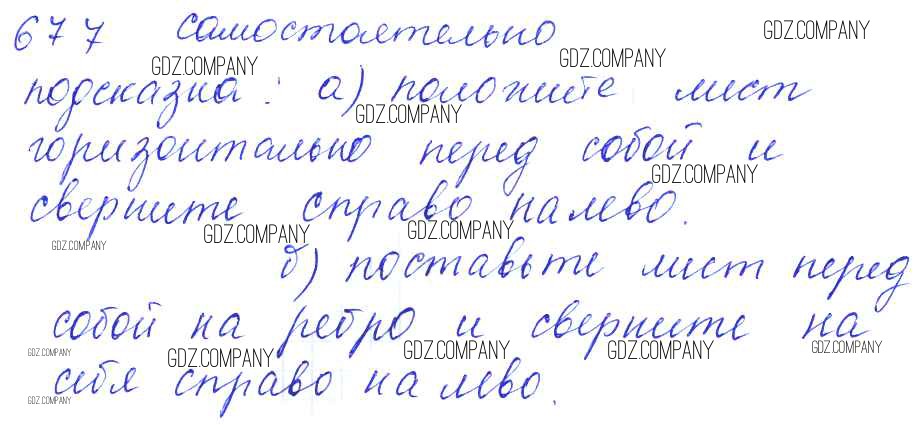 677 самостоятельно
GDZ.COMPANY
GDZ.COMPANY GDZ.COMPANY
подсказка: а) положите лист
GDZ.COMPANY
горизонтально перед собой и
GDZ.COMPANY
сверните справо налево.
GDZ.COMPANY GDZ.COMPANY
GDZ.COMPANY
б) поставьте лист перед
собой на ребро и сверните на
GDZ.COMPANY GDZ.COMPANY GDZ.COMPANY GDZ.COMPANY GDZ.COMPANY
себя справо налево.
GDZ.COMPANY